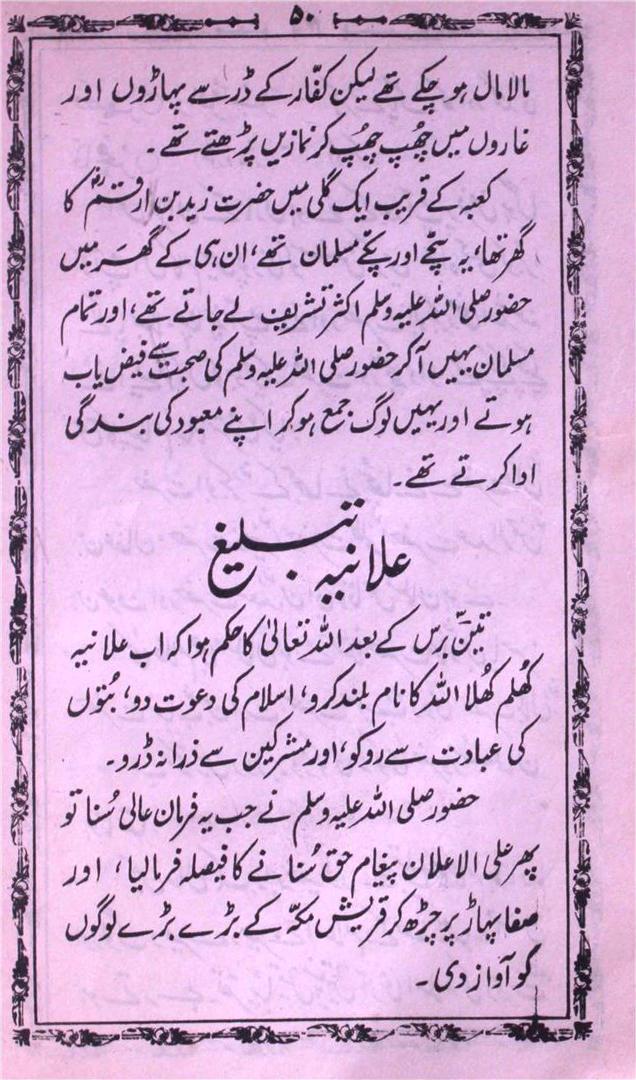 ۵۰
مالا مال ہو چکے تھے لیکن کفّار کے ڈر سے پہاڑوں اور
غاروں میں چُھپ چُھپ کر نمازیں پڑھتے تھے۔
کعبہ کے قریب ایک گلی میں حضرت زید بن ارقمؓ کا
گھر تھا، یہ سچّے اور پکّے مسلمان تھے، ان ہی کے گھر میں
حضور صلی اللہ علیہ وسلم اکثر تشریف لے جاتے تھے، اور تمام
مسلمان یہیں آ کر حضور صلی اللہ علیہ وسلم کی صحبت سے فیض یاب
ہوتے اور یہیں لوگ جمع ہو کر اپنے معبود کی بندگی
ادا کرتے تھے۔
علانیہ تبلیغ
تین برس کے بعد اللہ تعالیٰ کا حکم ہوا کہ اب علانیہ
کُھلم کُھلا اللہ کا نام بلند کرو، اسلام کی دعوت دو، بُتوں
کی عبادت سے روکو، اور مشرکین سے ذرا نہ ڈرو۔
حضور صلی اللہ علیہ وسلم نے جب یہ فرمان عالی سُنا تو
پھر علی الاعلان پیغام حق سُنانے کا فیصلہ فرمالیا، اور
صفا پہاڑ پر چڑھ کر قریش مکّہ کے بڑے بڑے لوگوں
کو آواز دی۔